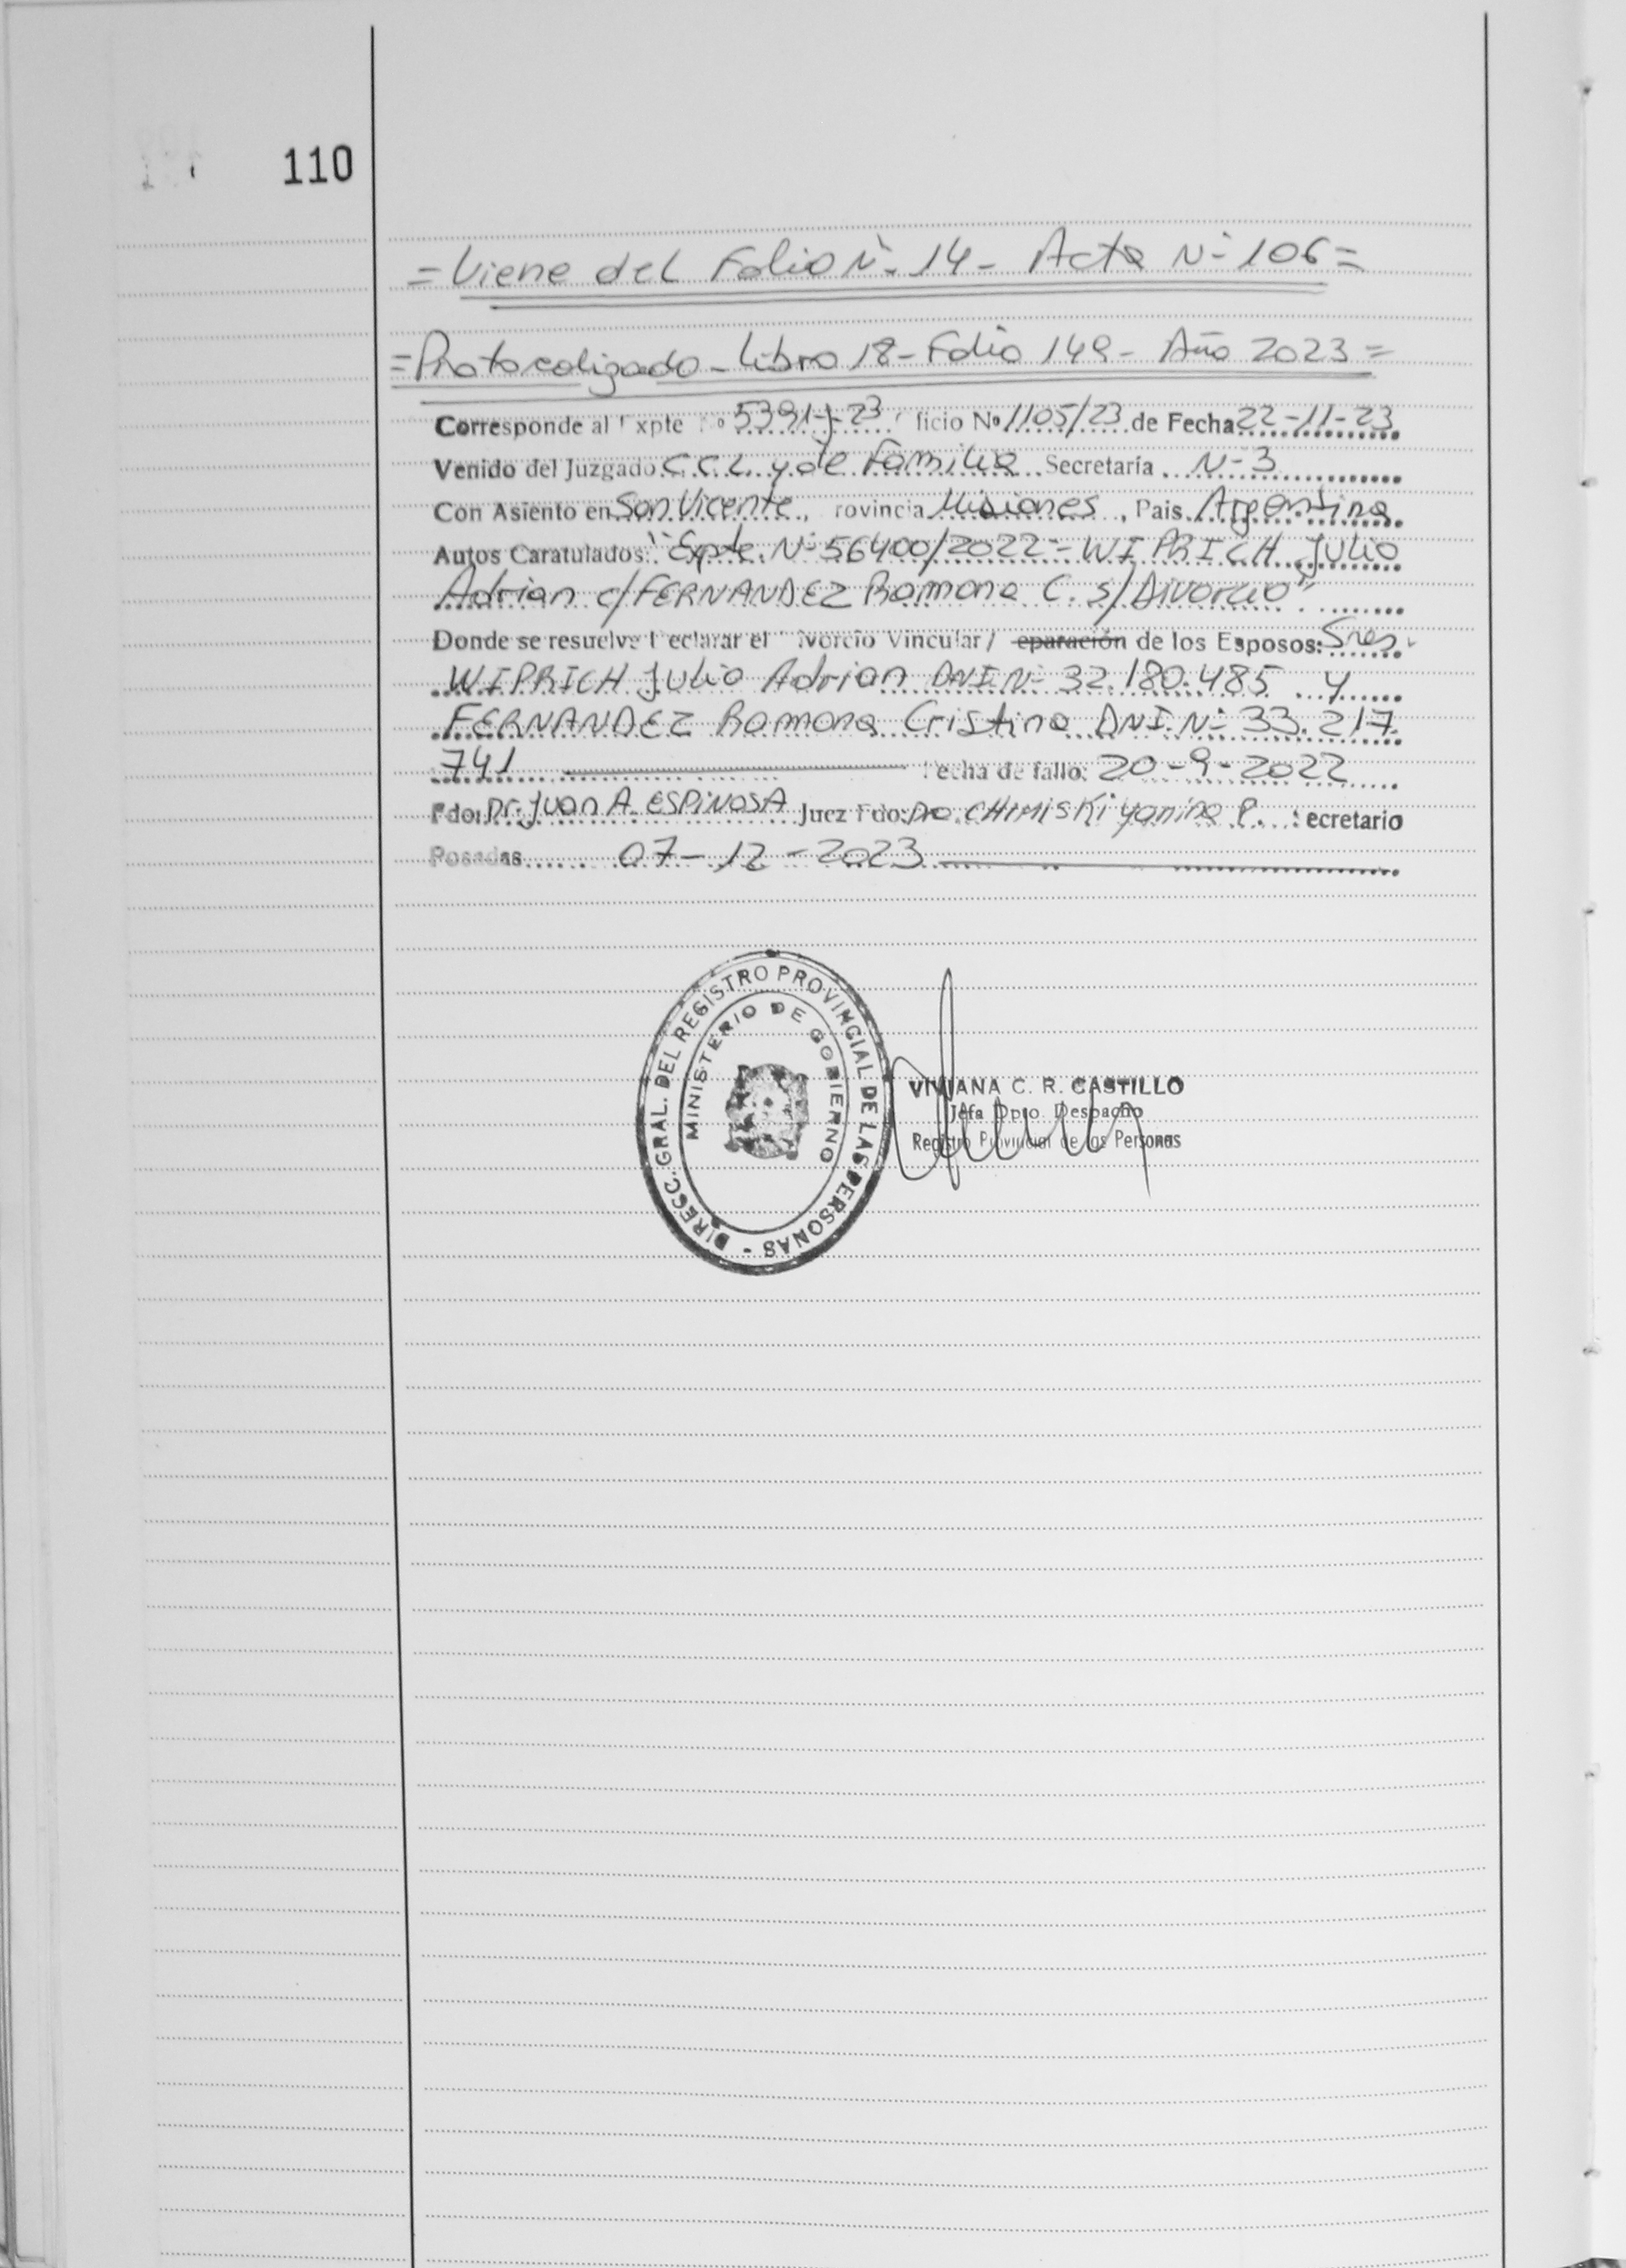 110
= Viene del Folio Nº 14 - Acta Nº 106 =
= Protocolizado - Libro 18 - Folio 149 - Año 2023 =
Corresponde al Expte Nº 5391-J-23 Oficio Nº 1105/23 de Fecha 22-11-23
Venido del Juzgado C.C.L. y de Familia Secretaría Nº 3
Con Asiento en San Vicente, rovincia Misiones, Pais Argentina
Autos Caratulados: "Expte. Nº 56400/2022 - WIPRICH Julio
Adrian c/ FERNANDEZ Ramona C. s/ Divorcio"
Donde se resuelve eclarar el ivorcio Vincular / eparación de los Esposos: Sres.
WIPRICH Julio Adrian DNI Nº 32.180.485 y
FERNANDEZ Ramona Cristina DNI. Nº 33.217.
741 echa de fallo: 20-9-2022
Fdo: Dr. Juan A. ESPINOSA Juez Fdo: Dra. CHIMISKI Yanina P. ecretario
Posadas 07-12-2023
DIRECC. GRAL. DEL REGISTRO PROVINCIAL DE LAS PERSONAS -
MINISTERIO DE GOBIERNO
VIVIANA C. R. CASTILLO
Jefa Dpto. Despacho
Registro Provincial de las Personas